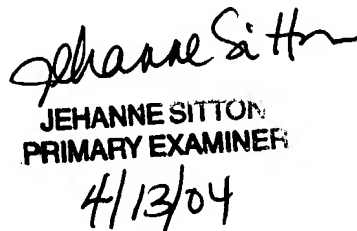 Jehanne Sitton
JEHANNE SITTON
PRIMARY EXAMINER
4/13/04